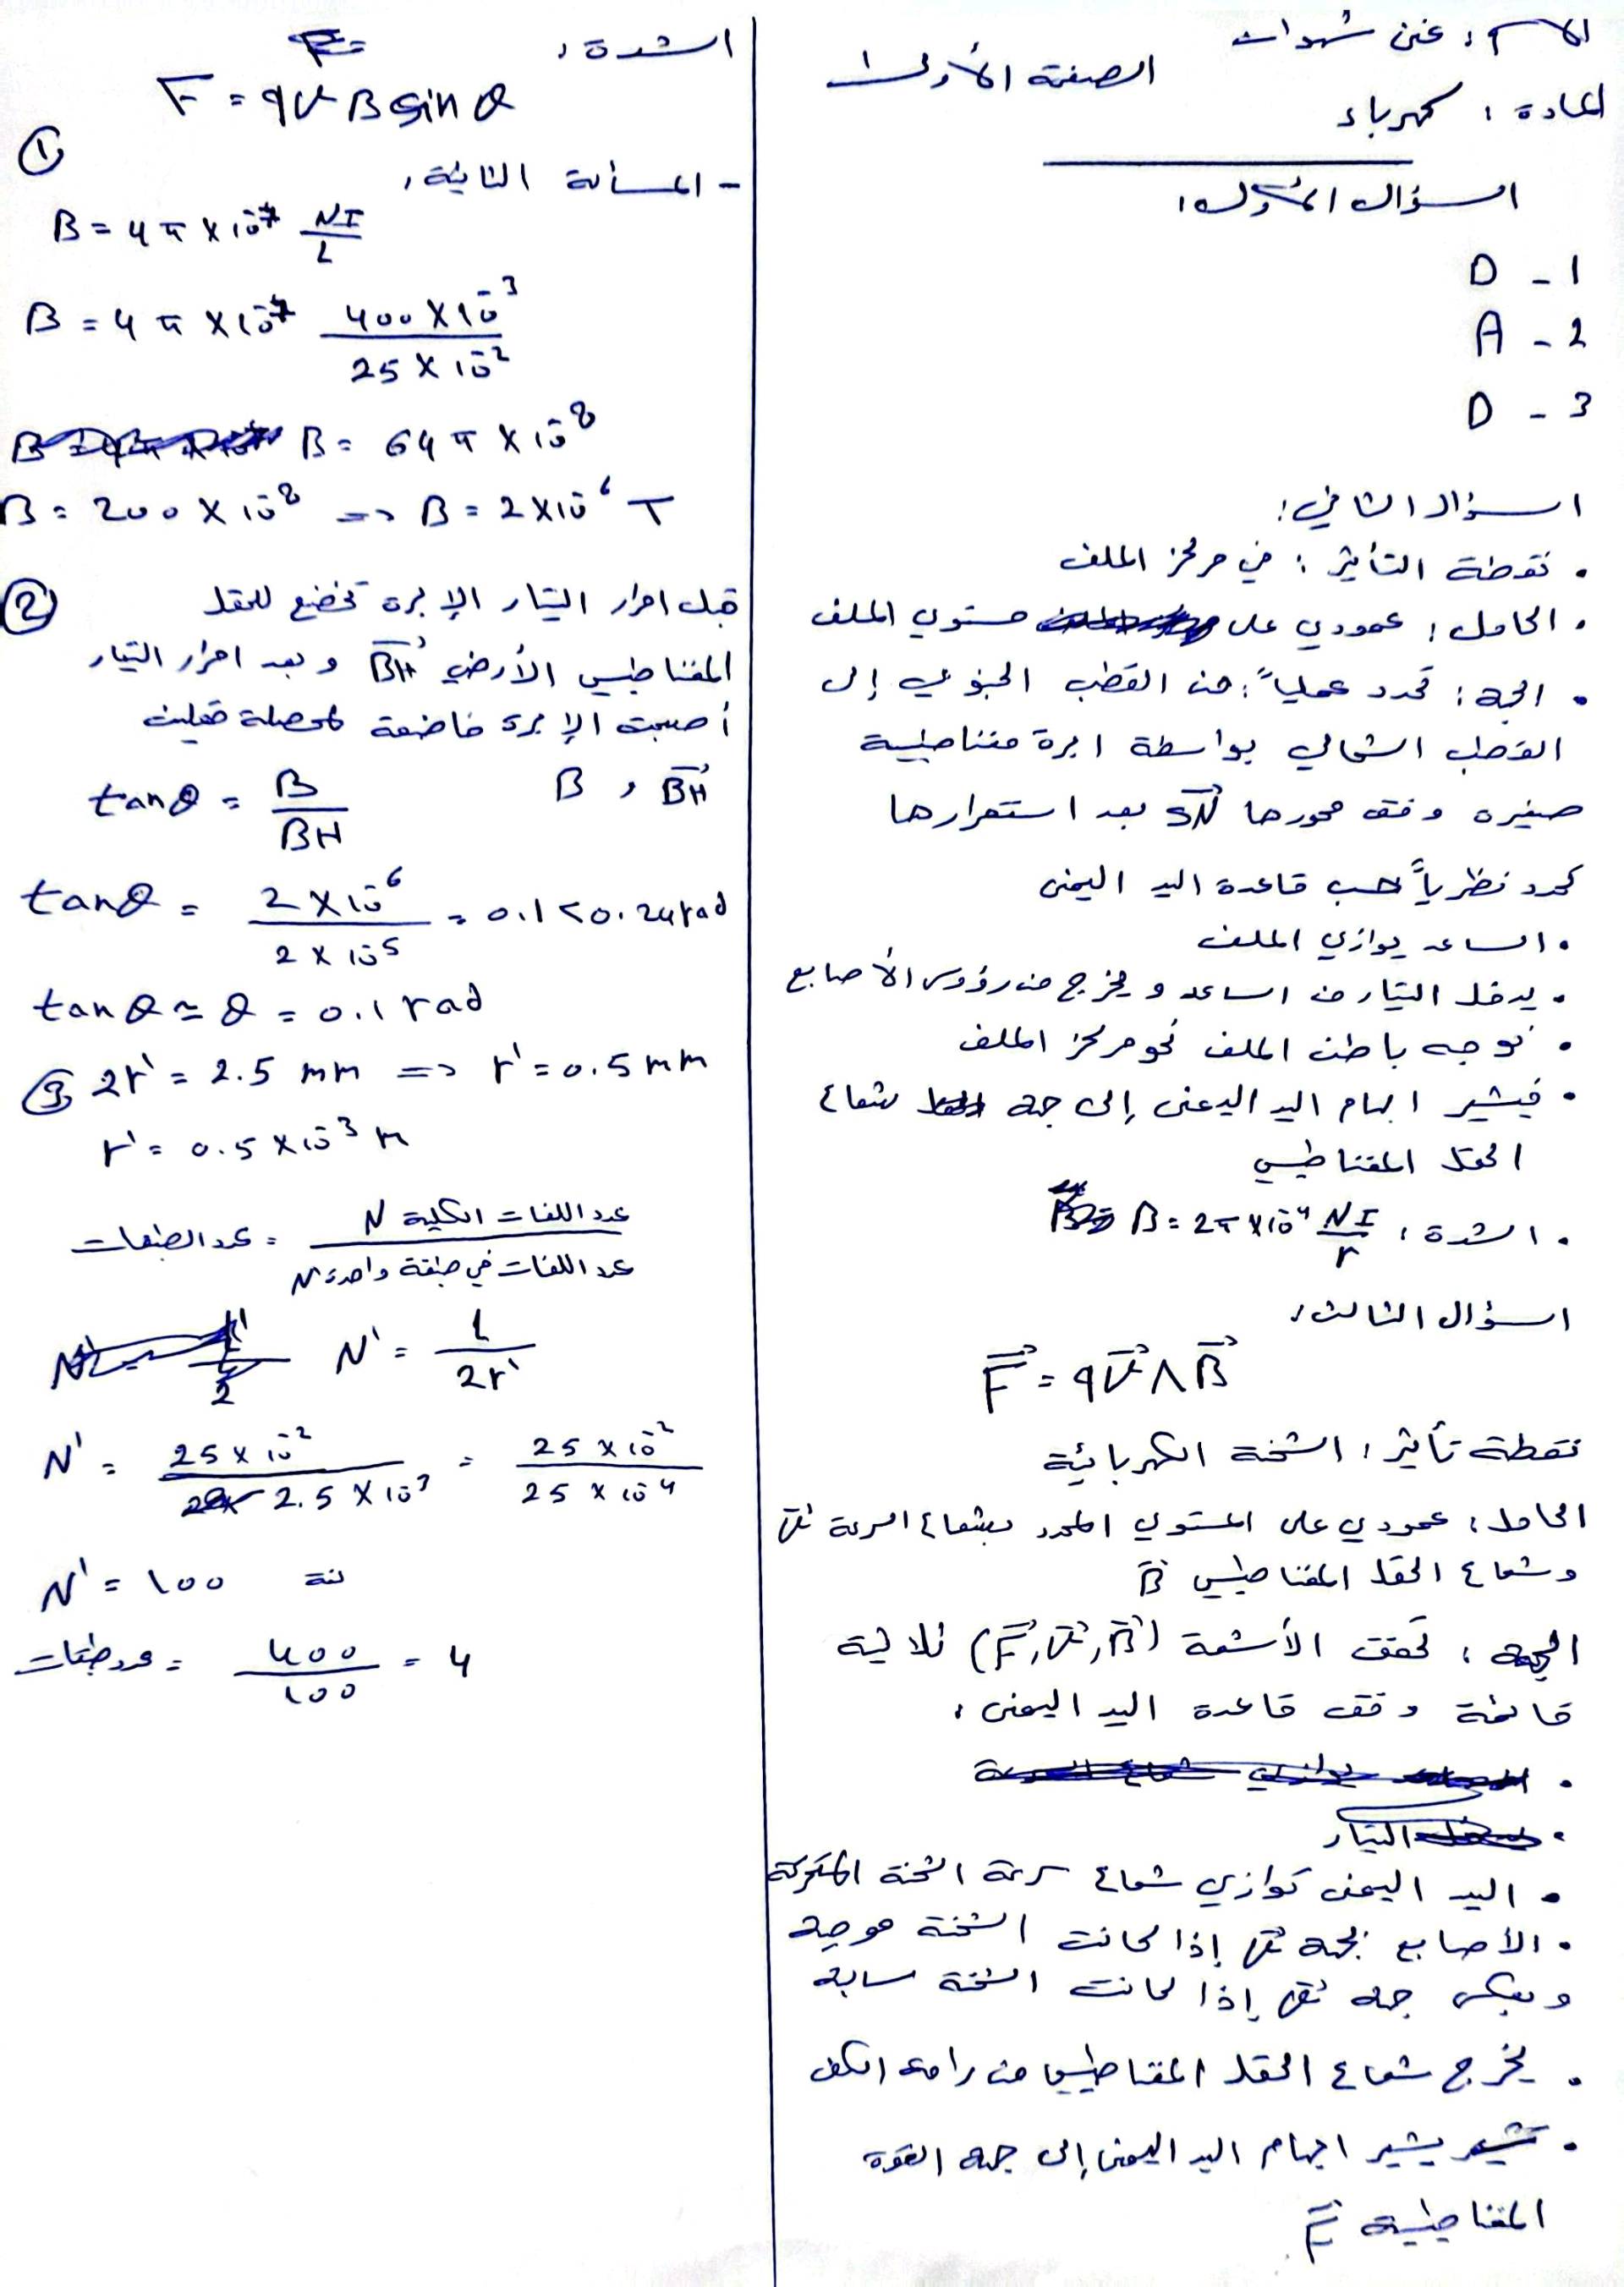 الاسم : غنى شهوات
المادة : كهرباء
الصفحة الأولى
السؤال الأول:
1 - D
2 - A
3 - D
السؤال الثاني:
• نقطة التأثير : في مركز الملف
• الحامل : عمودي على مستوي الملف
• الجهة : تحدد عملياً : من القطب الجنوبي إلى
القطب الشمالي بواسطة ابرة مغناطيسية
صغيرة وفق محورها SN بعد استقرارها
تحدد نظرياً حسب قاعدة اليد اليمنى
• الساعد يوازي الملف
• يدخل التيار من الساعد و يخرج من رؤوس الأصابع
• نوجه باطن الملف نحو مركز الملف
• فيشير ابهام اليد اليمنى إلى جهة شعاع
الحقل المغناطيسي
• الشدة : B = 2π×10⁻⁷ NI/r
السؤال الثالث:
F⃗ = qv⃗ ∧ B⃗
نقطة تأثير : الشحنة الكهربائية
الحامل : عمودي على المستوي المحدد بشعاع السرعة v⃗
وشعاع الحقل المغناطيسي B⃗
الجهة : تحقق الأشعة (F⃗, v⃗, B⃗) ثلاثية
قائمة وفق قاعدة اليد اليمنى :
• التيار
• اليد اليمنى توازي شعاع سرعة الشحنة المتحركة
• الأصابع بجهة v⃗ إذا كانت الشحنة موجبة
وبعكس جهة v⃗ إذا كانت الشحنة سالبة
• يخرج شعاع الحقل المغناطيسي من راحة الكف
• يشير ابهام اليد اليمنى إلى جهة القوة
المغناطيسية F⃗
الشدة :
F = qvB sin θ
- المسألة الثانية :
①
B = 4π × 10⁻⁷ NI/L
B = 4π × 10⁻⁷ 400×10⁻³ / 25×10⁻²
B = 64π × 10⁻⁸
B = 200 × 10⁻⁸ => B = 2×10⁻⁶ T
② قبل امرار التيار الإبرة تخضع للحقل
المغناطيسي الأرضي B⃗H و بعد امرار التيار
أصبحت الإبرة خاضعة لمحصلة حقلين
B⃗H , B
tanθ = B/BH
tanθ = 2×10⁻⁶ / 2×10⁻⁵ = 0.1 < 0.24 rad
tanθ ≃ θ = 0.1 rad
③ 2r' = 2.5 mm => r' = 0.5 mm
r' = 0.5×10⁻³ m
عدد الطبقات = عدد اللفات الكلية N / عدد اللفات في طبقة واحدة N'
N' = L/2r'
N' = 25×10⁻² / 2.5×10⁻³ = 25×10⁻² / 25×10⁻⁴
N' = 100 لفة
عدد طبقات = 400/100 = 4